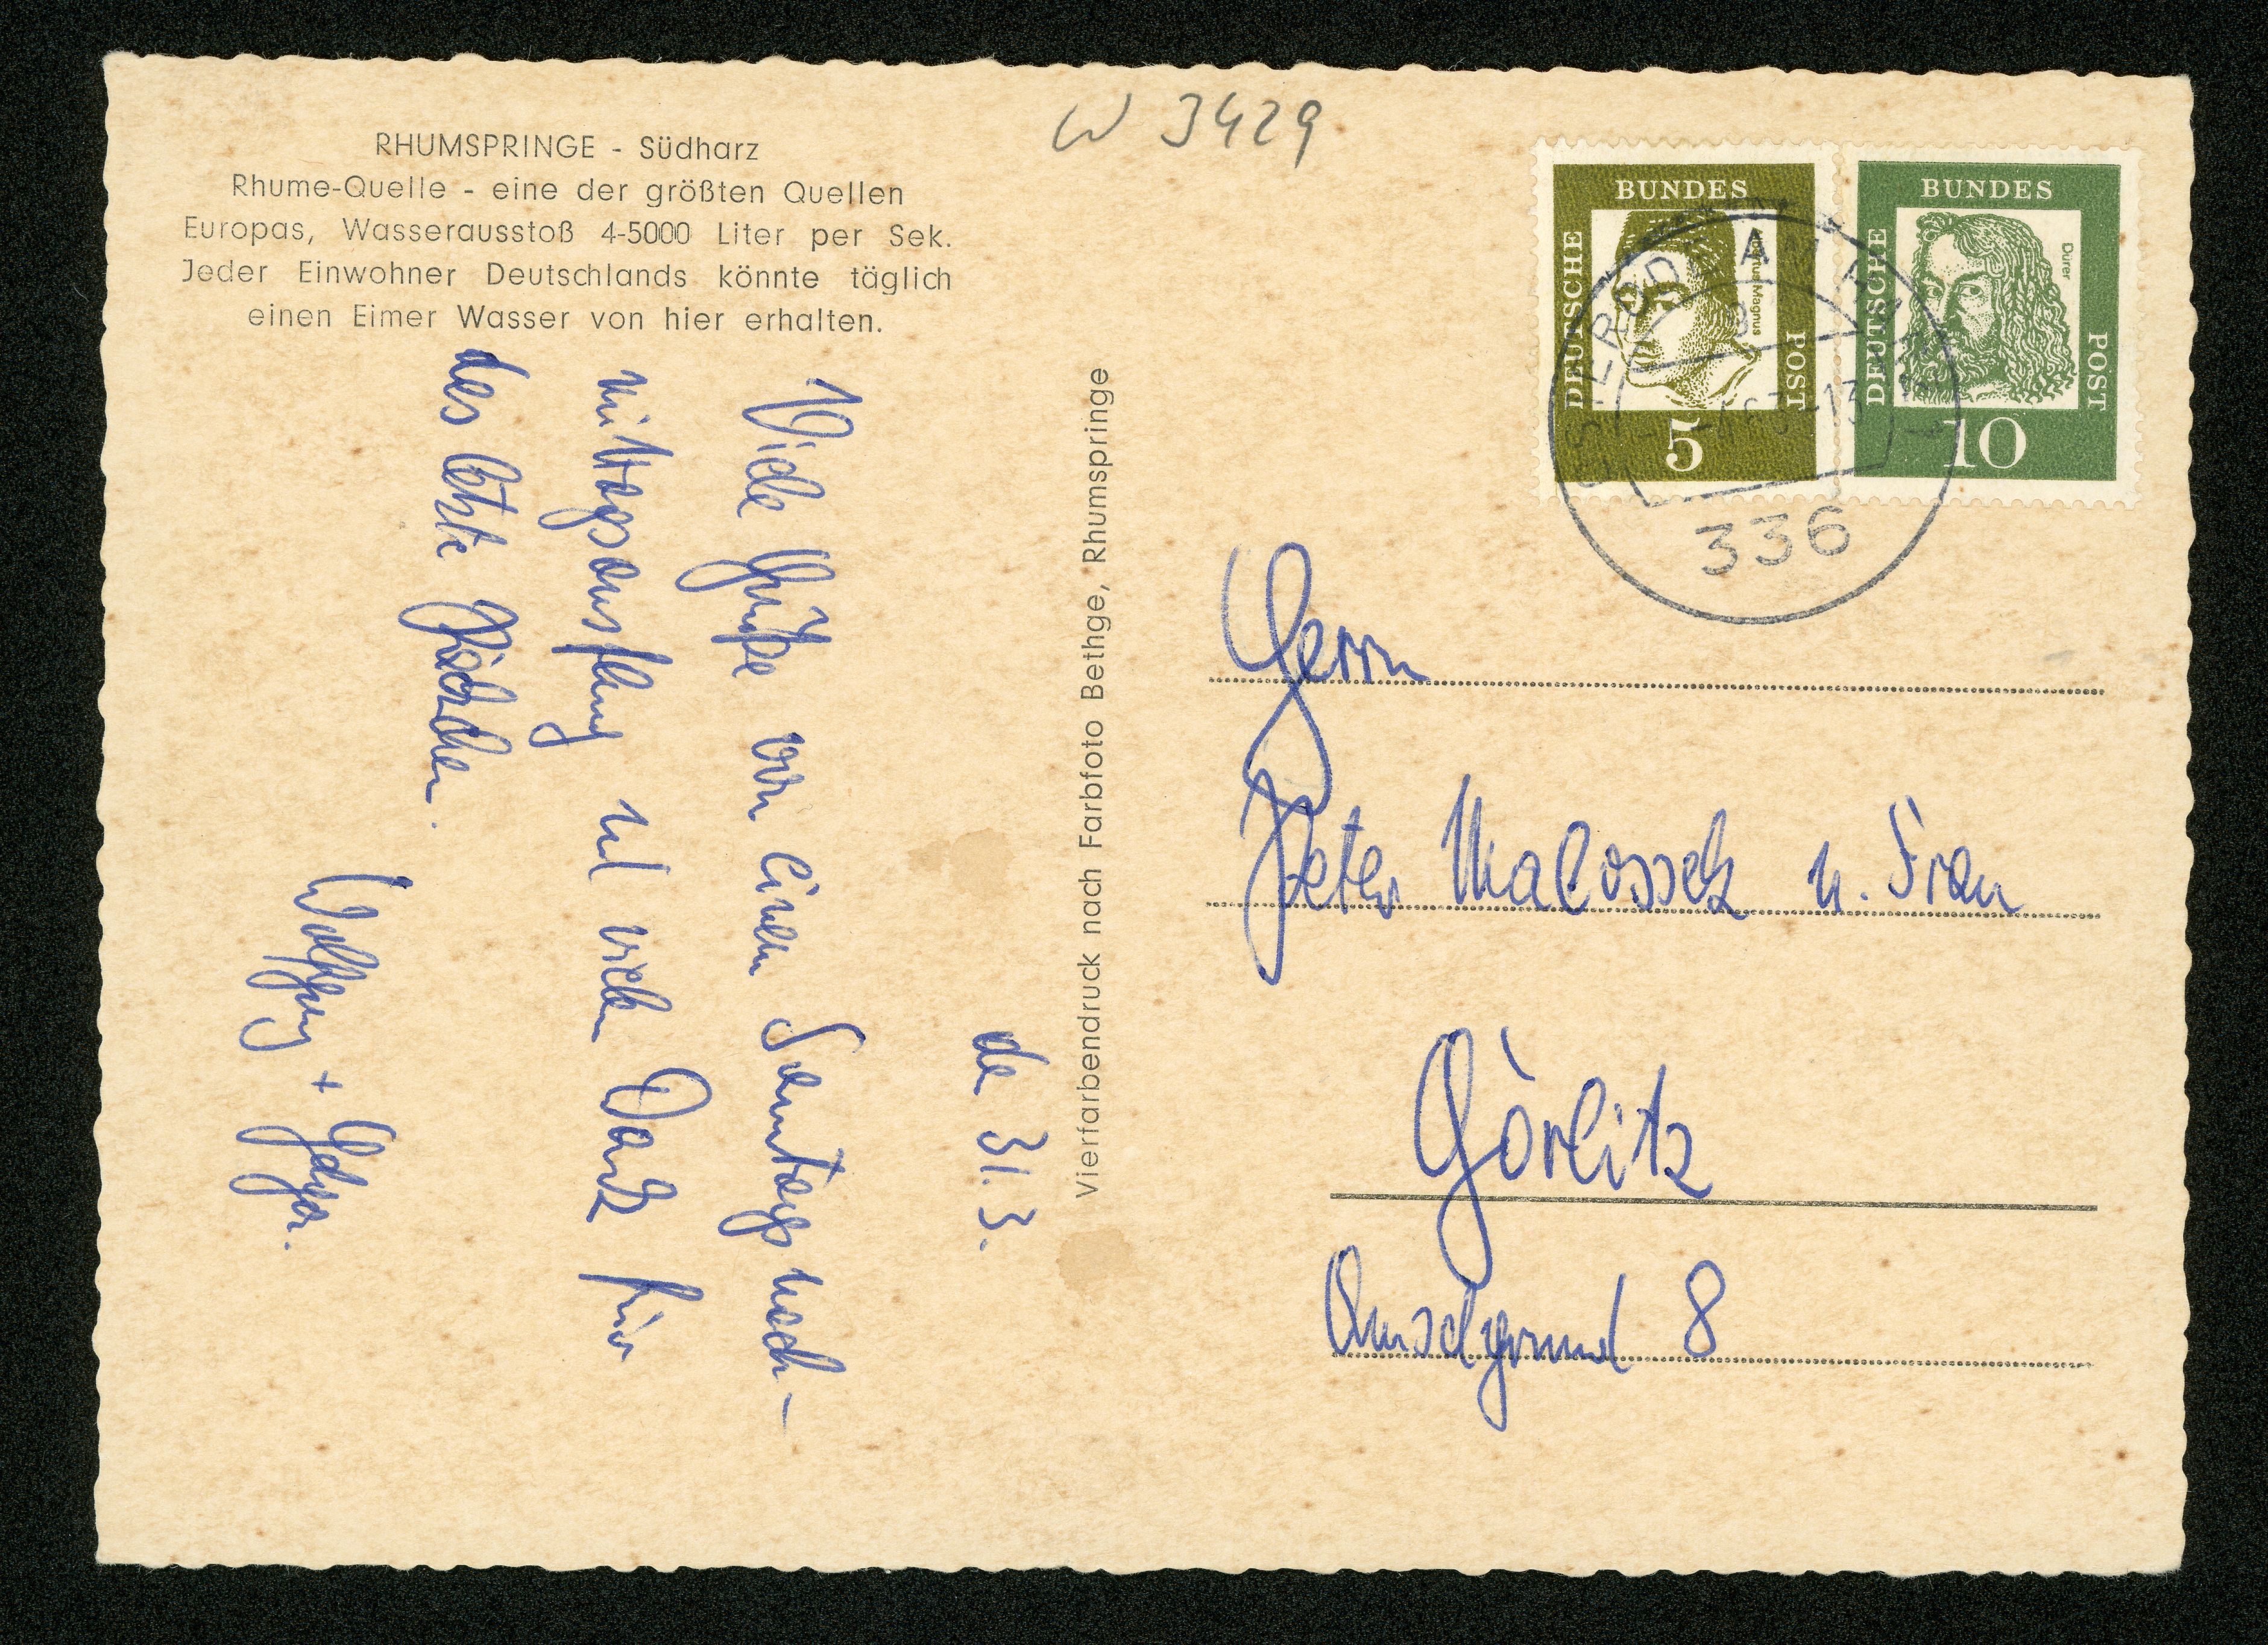 RHUMSPRINGE - Südharz
Rhume-Quelle - eine der größten Quellen
Europas, Wasserausstoß 4-5000 Liter per Sek.
Jeder Einwohner Deutschlands könnte täglich
einen Eimer Wasser von hier erhalten.
W 3429
den 31. 3.
Viele Grüße von einem Sonntagsnach-
mittagsausflug und vielen Dank für
das letzte Päckchen.
Wolfgang +
Vierfarbendruck nach Farbfoto Bethge, Rhumspringe
DEUTSCHE BUNDES POST
Albertus Magnus
5
DEUTSCHE BUNDES POST
Dürer
10
OSTERODE AM HARZ
336
Herrn
Peter Malossek u. Frau
Görlitz
8